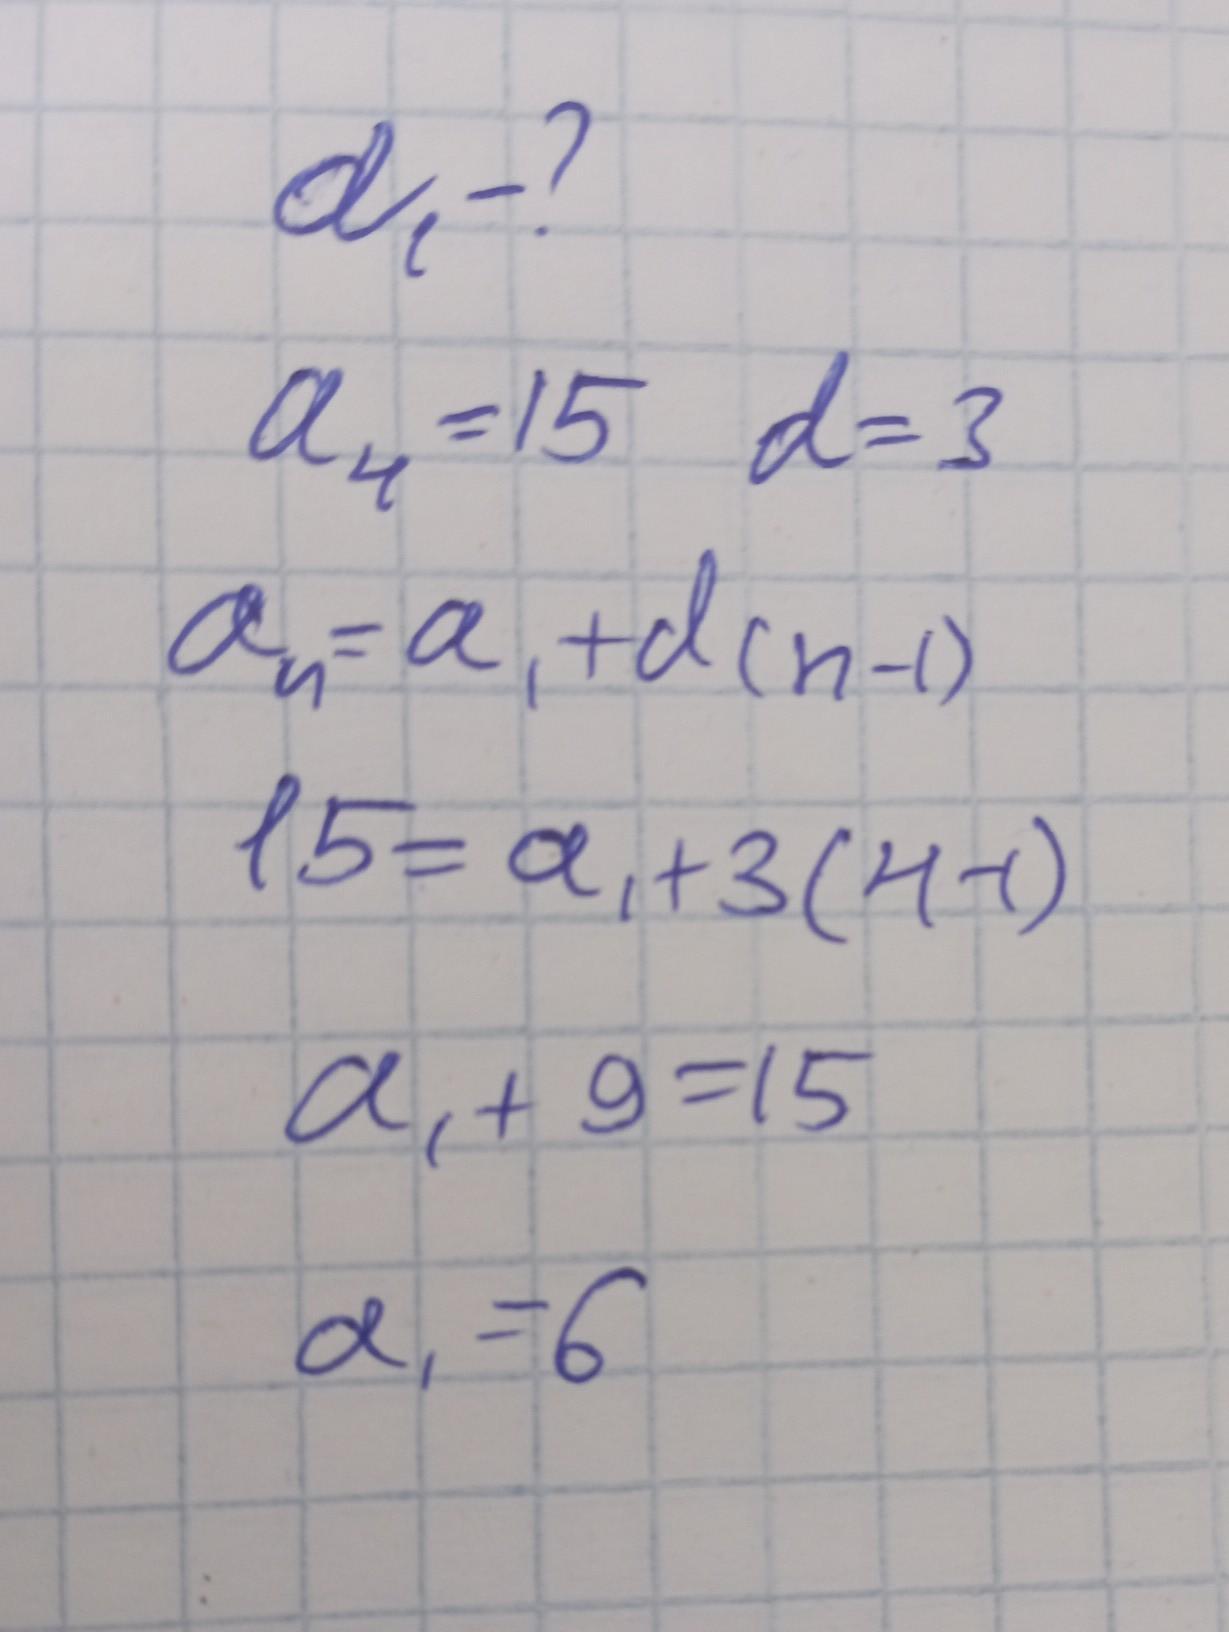 a₁ - ?
a₄ = 15 d = 3
aₙ = a₁ + d(n-1)
15 = a₁ + 3(4-1)
a₁ + 9 = 15
a₁ = 6